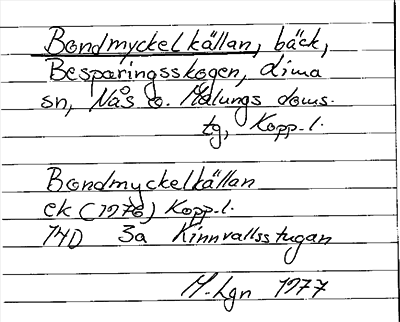 Bondmyckelkällan, bäck,
Besparingsskogen, Lima
sn, Nås o. Malungs doms.
tg, Kopp.l.
Bondmyckelkällan
ek (1976) Kopp.l.
14D 3a Kinnvallsstugan
M. Lgn 1977